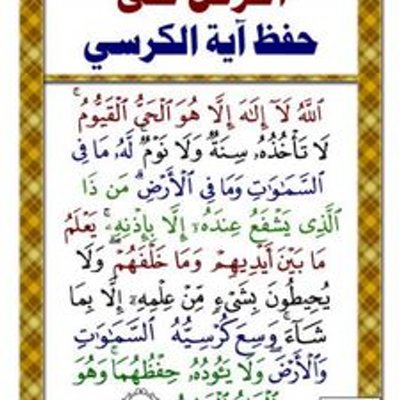 حفظ آية الكرسي
ٱللَّهُ لَآ إِلَٰهَ إِلَّا هُوَ ٱلْحَىُّ ٱلْقَيُّومُ ۚ
لَا تَأْخُذُهُۥ سِنَةٌ وَلَا نَوْمٌ ۚ لَّهُۥ مَا فِى
ٱلسَّمَٰوَٰتِ وَمَا فِى ٱلْأَرْضِ ۗ مَن ذَا
ٱلَّذِى يَشْفَعُ عِندَهُۥٓ إِلَّا بِإِذْنِهِۦ ۚ يَعْلَمُ
مَا بَيْنَ أَيْدِيهِمْ وَمَا خَلْفَهُمْ ۖ وَلَا
يُحِيطُونَ بِشَىْءٍ مِّنْ عِلْمِهِۦٓ إِلَّا بِمَا
شَآءَ ۚ وَسِعَ كُرْسِيُّهُ ٱلسَّمَٰوَٰتِ
وَٱلْأَرْضَ ۖ وَلَا يَـُٔودُهُۥ حِفْظُهُمَا ۚ وَهُوَ